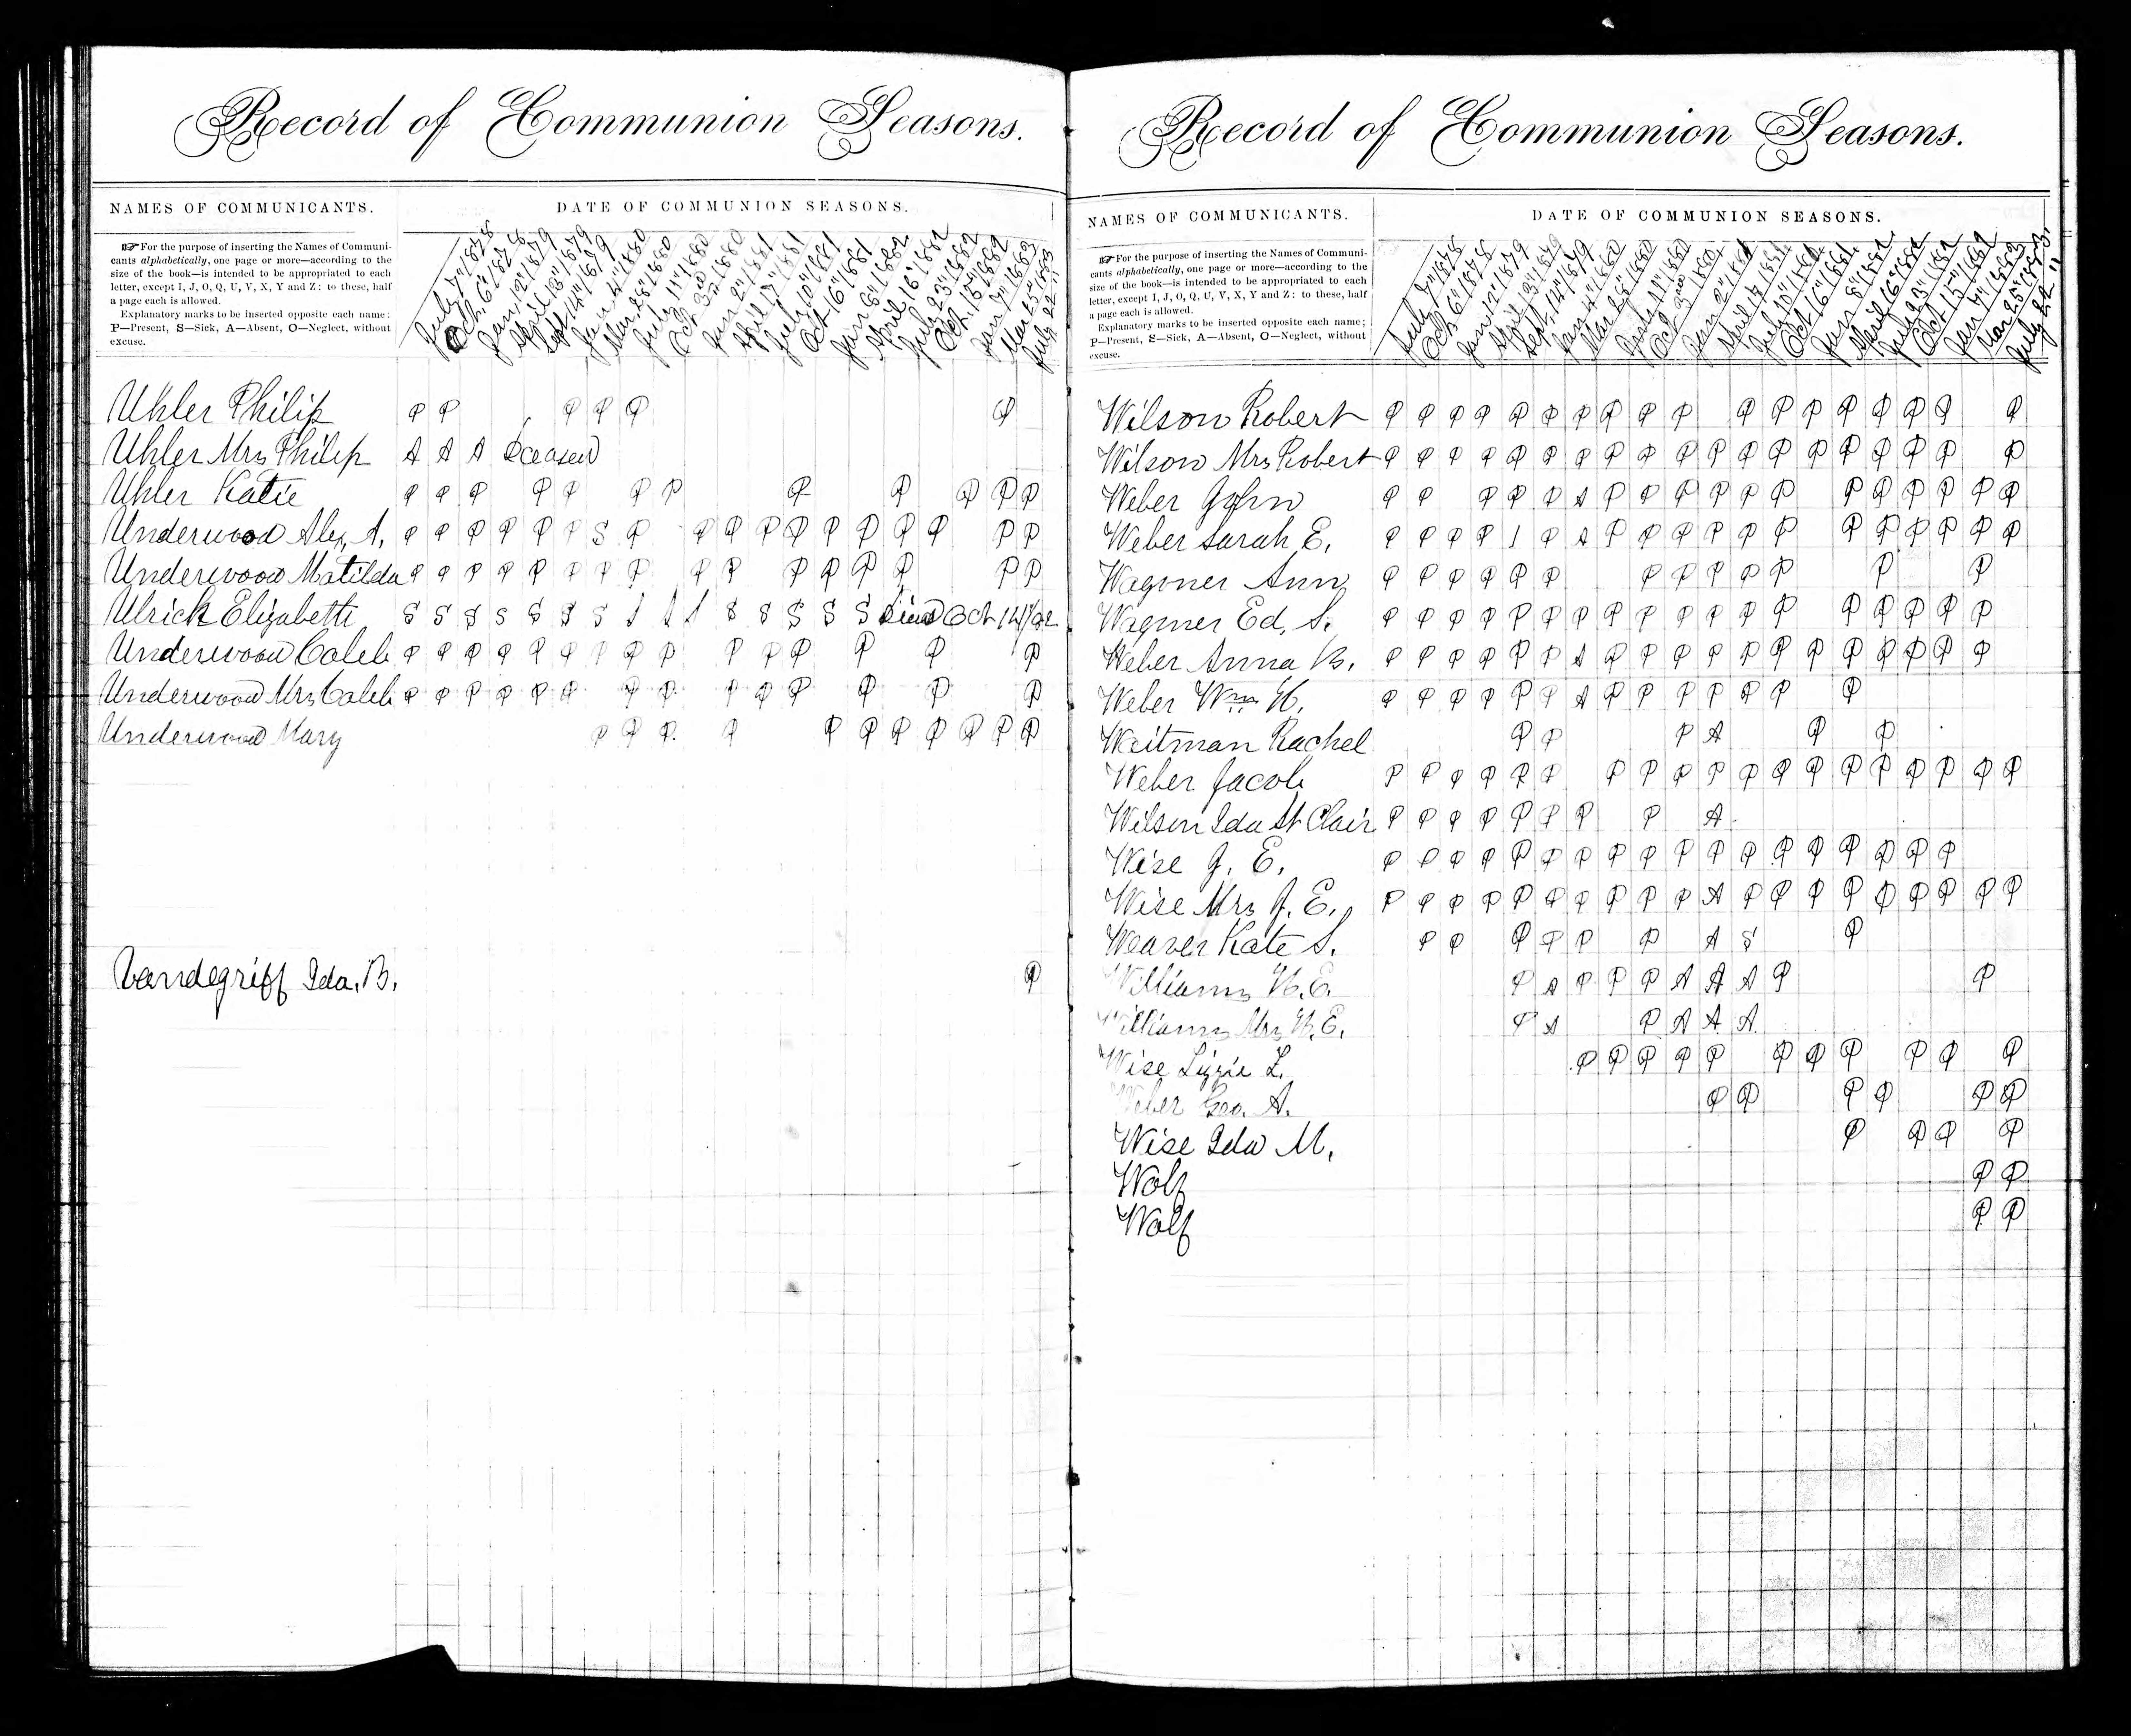 Record of Communion Seasons.
NAMES OF COMMUNICANTS.
DATE OF COMMUNION SEASONS.
☞ For the purpose of inserting the Names of Communi-
cants alphabetically, one page or more—according to the
size of the book—is intended to be appropriated to each
letter, except I, J, O, Q, U, V, X, Y and Z: to these, half
a page each is allowed.
Explanatory marks to be inserted opposite each name:
P—Present, S—Sick, A—Absent, O—Neglect, without
excuse.
July 7" 1878
Oct. 6" 1878
Jan. 12" 1879
April 13" 1879
Sept. 14" 1879
Jan 4" 1880
Mar. 28" 1880
July 11" 1880
Oct 3rd 1880
Jan 2" 1881
April 17" 1881
July 10" 1881
Oct. 16" 1881
Jan 8" 1882
April 16" 1882
July 23" 1882
Oct. 15" 1882
Jan 7" 1883
Mar 25" 1883
July 22 "
Uhler Philip P P P P P P
Uhler Mrs Philip A A A Deceased
Uhler Katie P P P P P P P P P P P P
Underwood Alex. A. P P P P P P S P P P P P P P P P P P
Underwood Matilda P P P P P P P P P P P P P P P P
Ulrick Elizabeth S S S S S S S S S S S S S S S Died Oct 14/82
Underwood Caleb P P P P P P P P P P P P P P P
Underwood Mrs Caleb P P P P P P P P P P P P P P
Underwood Mary P P P P P P P P P P P
Vandegriff Ida. B. P
Record of Communion Seasons.
NAMES OF COMMUNICANTS.
DATE OF COMMUNION SEASONS.
☞ For the purpose of inserting the Names of Communi-
cants alphabetically, one page or more—according to the
size of the book—is intended to be appropriated to each
letter, except I, J, O, Q, U, V, X, Y and Z: to these, half
a page each is allowed.
Explanatory marks to be inserted opposite each name;
P—Present, S—Sick, A—Absent, O—Neglect, without
excuse.
July 7" 1878
Oct. 6" 1878
Jan. 12" 1879
April 13" 1879
Sept. 14" 1879
Jan 4" 1880
Mar 28" 1880
July 11" 1880
Oct 3rd 1880
Jan 2" 1881
April 17" 1881
July 10" 1881
Oct 16" 1881
Jan 8" 1882
April 16" 1882
July 23" 1882
Oct 15" 1882
Jan 7" 1883
Mar 25" 1883
July 22 "
Wilson Robert P P P P P P P P P P P P P P P P P P
Wilson Mrs Robert P P P P P P P P P P P P P P P P P P P
Weber John P P P P P A P P P P P P P P P P P P
Weber Sarah E. P P P P P A P P P P P P P P P P P P
Wagoner Ann P P P P P P P P P P P P P
Wagoner Ed. S. P P P P P P P P P P P P P P P P P P
Weber Anna B. P P P P P P A P P P P P P P P P P P P
Weber Wm. H. P P P P P P A P P P P P P P
Weitman Rachel P P P A P P
Weber Jacob P P P P P P P P P P P P P P P P P P
Wilson Ida St Clair P P P P P P P P A
Wise J. E. P P P P P P P P P P P P P P P P P P
Wise Mrs J. E. P P P P P P P P P P A P P P P P P P P P
Weaver Kate S. P P P P P P A S P
Williams H. E. P A P P P A A A P P
Williams Mrs H. E. P A P A A A
Wise Lizzie L. P P P P P P P P P P P
Weber Geo. A. P P P P P P
Wise Ida M. P P P P
Wolf P P
Wolf P P